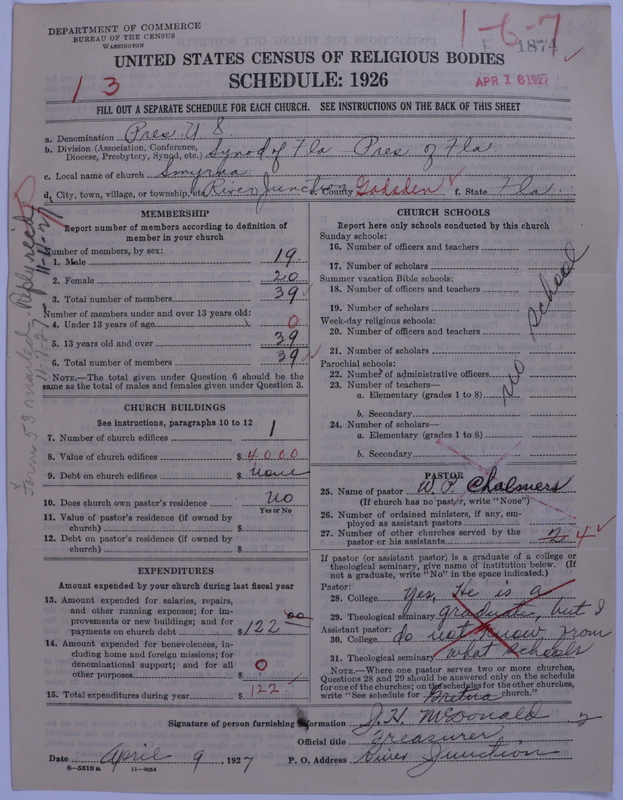 DEPARTMENT OF COMMERCE
BUREAU OF THE CENSUS
WASHINGTON
1-6-7
1874
APR 16 1927
UNITED STATES CENSUS OF RELIGIOUS BODIES
SCHEDULE: 1926
1 3
FILL OUT A SEPARATE SCHEDULE FOR EACH CHURCH. SEE INSTRUCTIONS ON THE BACK OF THIS SHEET
a. Denomination Pres. U S
b. Division (Association, Conference, Diocese, Presbytery, Synod, etc.) Synod of Fla Pres of Fla
c. Local name of church Smyrna
d. City, town, village, or township, etc. River Junction e. County Gadsden f. State Fla
Form 53 mailed
Reply rec'd 11-11-27
MEMBERSHIP
Report number of members according to definition of
member in your church
Number of members, by sex:
1. Male 19
2. Female 20
3. Total number of members 39
Number of members under and over 13 years old:
4. Under 13 years of age 0
5. 13 years old and over 39
6. Total number of members 39
NOTE.—The total given under Question 6 should be the
same as the total of males and females given under Question 3.
CHURCH BUILDINGS
See instructions, paragraphs 10 to 12
7. Number of church edifices 1
8. Value of church edifices $ 4000
9. Debt on church edifices $ None
10. Does church own pastor's residence No
Yes or No
11. Value of pastor's residence (if owned by
church) $
12. Debt on pastor's residence (if owned by
church) $
EXPENDITURES
Amount expended by your church during last fiscal year
13. Amount expended for salaries, repairs,
and other running expenses; for im-
provements or new buildings; and for
payments on church debt $ 122 00
14. Amount expended for benevolences, in-
cluding home and foreign missions; for
denominational support; and for all
other purposes $ 0
15. Total expenditures during year $ 122
CHURCH SCHOOLS
Report here only schools conducted by this church
Sunday schools:
16. Number of officers and teachers
17. Number of scholars
Summer vacation Bible schools:
18. Number of officers and teachers
19. Number of scholars
Week-day religious schools:
20. Number of officers and teachers
21. Number of scholars
Parochial schools:
22. Number of administrative officers
23. Number of teachers—
a. Elementary (grades 1 to 8)
b. Secondary
24. Number of scholars—
a. Elementary (grades 1 to 8)
b. Secondary
no school
PASTOR
25. Name of pastor W. P. Chalmers
(If church has no pastor, write "None")
26. Number of ordained ministers, if any, em-
ployed as assistant pastors
27. Number of other churches served by the
pastor or his assistants 2 4
If pastor (or assistant pastor) is a graduate of a college or
theological seminary, give name of institution below. (If
not a graduate, write "No" in the space indicated.)
Pastor:
28. College Yes, He is a
29. Theological seminary graduate, but I
Assistant pastor:
30. College do not know from
31. Theological seminary what schools
NOTE.—Where one pastor serves two or more churches,
Questions 28 and 29 should be answered only on the schedule
for one of the churches; on the schedules for the other churches,
write "See schedule for Gretna church."
Signature of person furnishing information J. H. McDonald
Official title Treasurer
Date April 9, 1927 P. O. Address River Junction
8-5518 a 11-9054